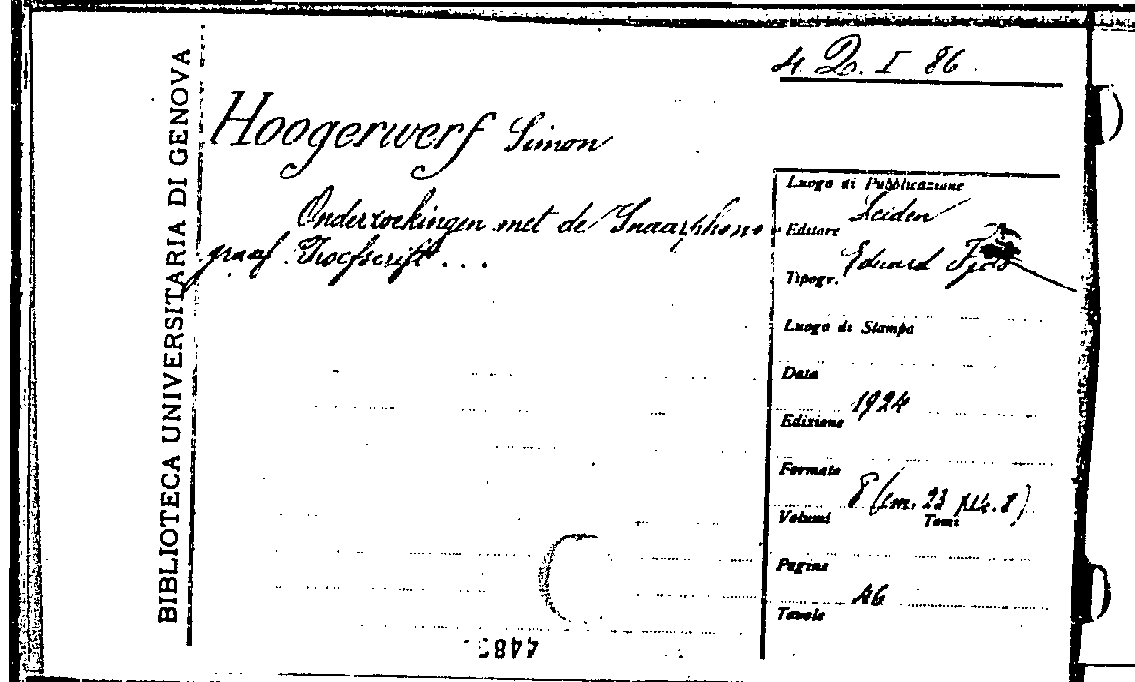 4. D. I 86.
BIBLIOTECA UNIVERSITARIA DI GENOVA
Hoogerwerf Simon
Onderzoekingen met de Snaarphono-
graaf. Proefscrift...
Luogo di Pubblicazione
Leiden
Editore
Eduard
Tipogr.
Luogo di Stampa
Data
1924
Edizione
Formato
8 (cm. 23
Volumi
Tomi
Pagine
46
Tavole